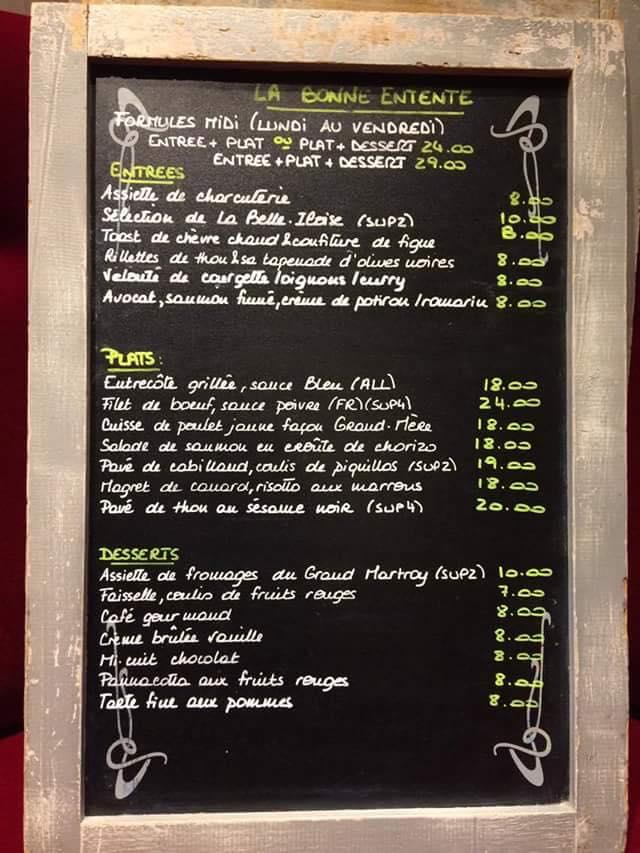 LA BONNE ENTENTE
FORMULES MIDI (LUNDI AU VENDREDI)
ENTREE + PLAT OU PLAT + DESSERT 24.00
ENTREE + PLAT + DESSERT 29.00
ENTREES
Assiette de charcuterie 8.00
Sélection de La Belle-Iloise (SUP2) 10.00
Toast de chèvre chaud & confiture de figue 8.00
Rillettes de thon & sa tapenade d'olives noires 8.00
Velouté de courgette / oignons / curry 8.00
Avocat, saumon fumé, crème de potiron / romarin 8.00
PLATS:
Entrecôte grillée, sauce Bleu (ALL) 18.00
Filet de boeuf, sauce poivre (FR) (SUP4) 24.00
Cuisse de poulet jaune façon Grand-Mère 18.00
Salade de saumon en croûte de chorizo 18.00
Pavé de cabillaud, coulis de piquillos (SUP2) 19.00
Magret de canard, risotto aux marrons 18.00
Pavé de thon au sésame noir (SUP4) 20.00
DESSERTS
Assiette de fromages du Grand Martroy (SUP2) 10.00
Faisselle, coulis de fruits rouges 7.00
Café gourmand 8.00
Crème brûlée vanille 8.00
Mi-cuit chocolat 8.00
Pannacotta aux fruits rouges 8.00
Tarte fine aux pommes 8.00